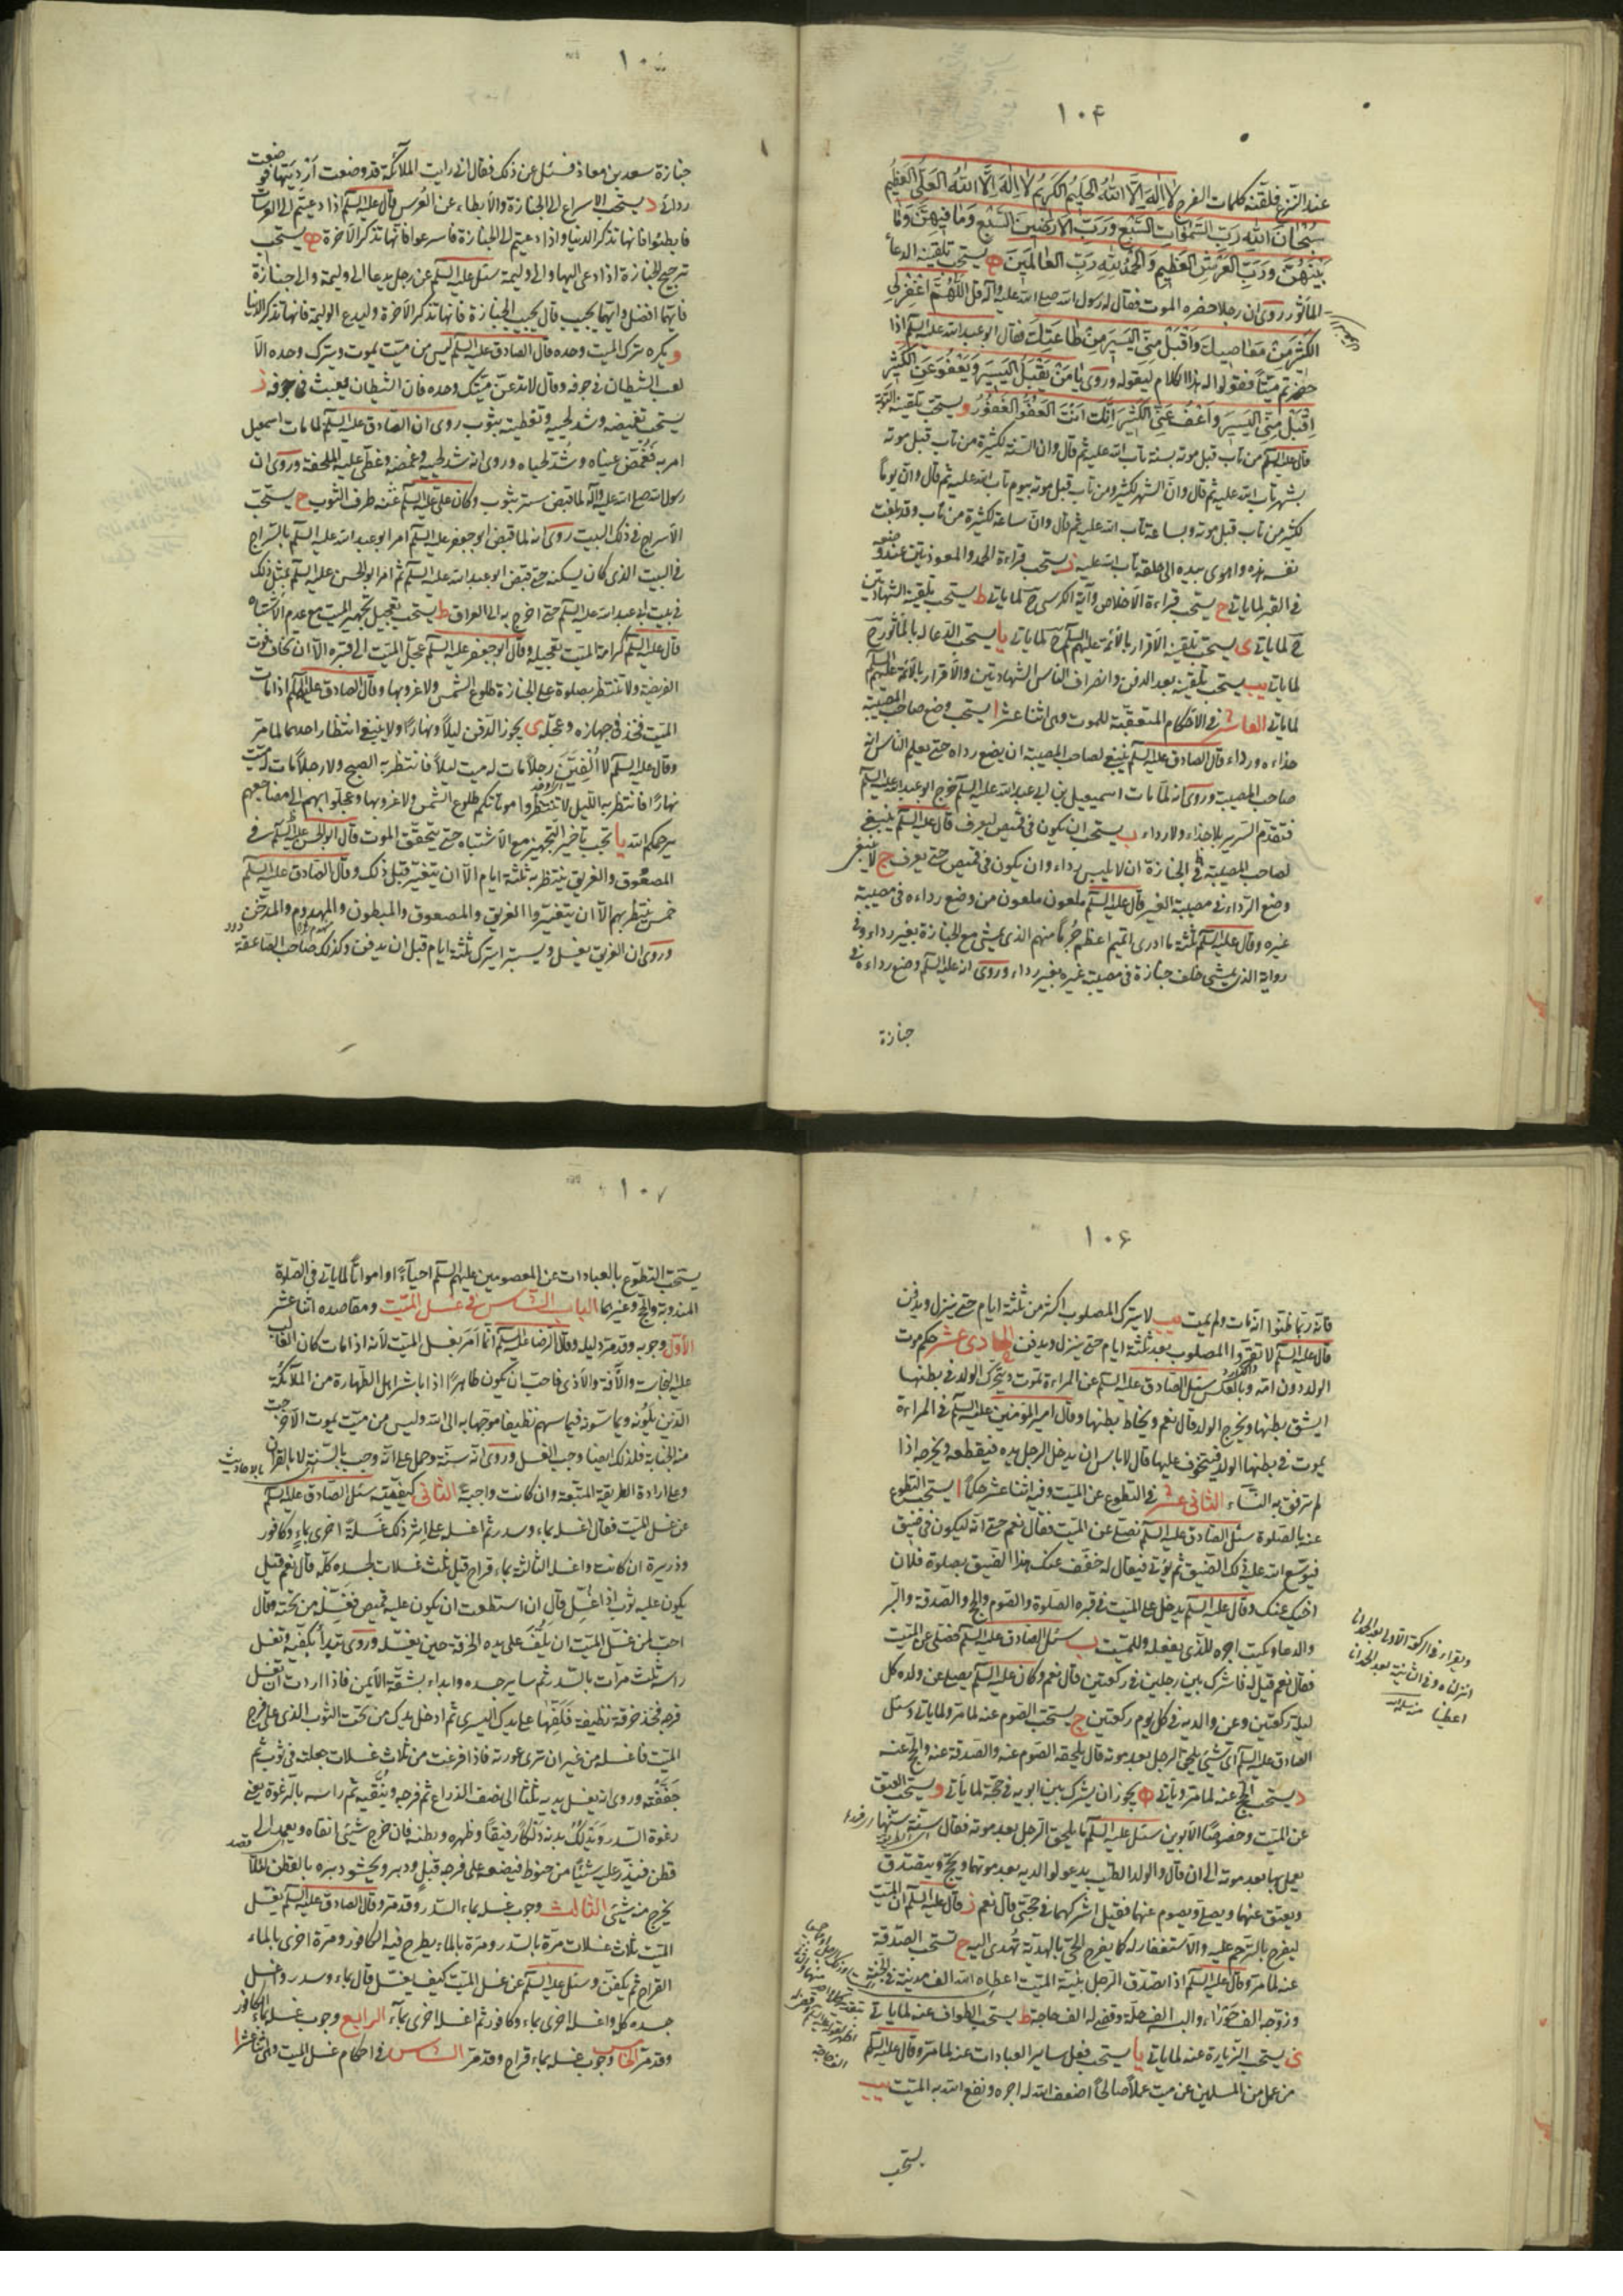 ١٠۴
عند النزع فلقنه كلمات الفرج لا اله الا الله الحليم الكريم لا اله الا الله العلي العظيم
سبحان الله رب السموات السبع ورب الارضين السبع وما فيهن وما
بينهن ورب العرش العظيم والحمد لله رب العالمين ه يستحب تلقينه الدعاء
المأثور روى ان رجلا حضره الموت فقال له رسول الله صلى الله عليه وآله قل اللهم اغفر لي
الكثير من معاصيك واقبل مني اليسير من طاعتك فقال ابو عبد الله عليه السلم اذا
حضرتم ميتا فقولوا له هذا الكلام ليقوله وروى يا من يقبل اليسير ويعفو عن الكثير
اقبل مني اليسير واعف عني الكثير انك انت العفو الغفور و يستحب تلقينه التوبة
قال عليه السلم من تاب قبل موته بسنة تاب الله عليه ثم قال وان السنة لكثيرة من تاب قبل موته
بشهر تاب الله عليه ثم قال وان الشهر لكثير ومن تاب قبل موته بيوم تاب الله عليه ثم قال وان يوما
لكثير من تاب قبل موته بساعة تاب الله عليه ثم قال وان ساعة لكثيرة من تاب وقد بلغت
نفسه هذه واهوى بيده الى حلقه تاب الله عليه ز يستحب قراءة الحمد والمعوذتين عنده
في القبر لما ياتي ح يستحب قراءة الاخلاص وآية الكرسي ح لما ياتي ط يستحب تلقينه الشهادتين
ح لما ياتي ى يستحب تلقينه الاقرار بالأئمة عليهم السلم ح لما ياتي يا يستحب الدعا له بالمأثور ح
لما ياتي يب يستحب تلقينه بعد الدفن وانصراف الناس الشهادتين والاقرار بالأئمة عليهم السلم
لما ياتي العاشر في الاحكام المتعقبة للموت وهى اثنا عشر ا يستحب وضع صاحب المصيبة
حذاءه ورداءه قال الصادق عليه السلم ينبغي لصاحب المصيبة ان يضع رداه حتى يعلم الناس انه
صاحب المصيبة وروى انه لما مات اسمعيل بن ابي عبد الله عليه السلم خرج ابو عبد الله عليه السلم
فتقدم السرير بلا حذاء ولا رداء ب يستحب ان يكون في قميص ليعرف قال عليه السلم ينبغي
لصاحب المصيبة في الجنازة ان لا يلبس رداء وان يكون في قميص حتى يعرف ج لا ينبغي
وضع الرداء في مصيبة الغير قال عليه السلم ملعون ملعون من وضع رداءه في مصيبة
غيره وقال عليه السلم ثلثة ما ادرى ايهم اعظم جرما منهم الذي يمشي مع الجنازة بغير رداء وفي
رواية الذي يمشي خلف جنازة في مصيبة غيره بغير رداء وروى انه عليه السلم وضع رداءه في
جنازة
١٠
جنازة سعد بن معاذ فسئل عن ذلك فقال اني رايت الملائكة قد وضعت ارديتها فوضعت
ردائي د يستحب الاسراع الى الجنازة والابطاء عن العرس قال عليه السلم اذا دعيتم الى العرسات
فابطئوا فانها تذكر الدنيا واذا دعيتم الى الجنازة فاسرعوا فانها تذكر الاخرة ه يستحب
ترجيح الجنازة اذا دعى اليها والى وليمة سئل عليه السلم عن رجل يدعا الى وليمة والى جنازة
فايهما افضل وايهما يجيب قال يجيب الجنازة فانها تذكر الاخرة وليدع الوليمة فانها تذكر الدنيا
و يكره ترك الميت وحده قال الصادق عليه السلم ليس من ميت يموت ويترك وحده الا
لعب الشيطان في جوفه وقال لا تدعن ميتك وحده فان الشيطان يعبث في جوفه ز
يستحب تغميضه وشد لحييه وتغطيته بثوب روى ان الصادق عليه السلم لما مات اسمعيل
امر به فغمض عيناه وشد لحياه وروى انه شد لحييه وغمضه وغطى عليه الملحفة وروى ان
رسول الله صلى الله عليه وآله لما قبض ستر بثوب وكان علي عليه السلم عند طرف الثوب ح يستحب
الاسراج في ذلك البيت روى انه لما قبض ابو جعفر عليه السلم امر ابو عبد الله عليه السلم بالسراج
في البيت الذي كان يسكنه حتى قبض ابو عبد الله عليه السلم ثم امر ابو الحسن عليه السلم بمثل ذلك
في بيت ابي عبد الله عليه السلم حتى اخرج به الى العراق ط يستحب تعجيل تجهيز الميت مع عدم الاشتباه
قال عليه السلم كرامة الميت تعجيله وقال ابو جعفر عليه السلم عجل الميت الى قبره الا ان تخاف فوت
الفريضة ولا تنتظر بصلوة على الجنازة طلوع الشمس ولا غروبها وقال الصادق عليه السلم اذا مات
الميت فخذ في جهازه وعجله ى يجوز الدفن ليلا ونهارا ولا ينبغي انتظار احدهما لما مر
وقال عليه السلم لا الفين رجلا مات له ميت ليلا فانتظر به الصبح ولا رجلا مات له ميت
نهارا فانتظر به الليل لا تنتظروا موتاكم طلوع الشمس ولا غروبها وعجلوا بهم الى مضاجعهم
يرحمكم الله يا تجب تاخير التجهيز مع الاشتباه حتى يتحقق الموت قال ابو الحسن عليه السلم في
المصعوق والغريق ينتظر به ثلثة ايام الا ان يتغير قبل ذلك وقال الصادق عليه السلم
خمس ينتظر بهم الا ان يتغيروا الغريق والمصعوق والمبطون والمهدوم والمدخن
وروى ان الغريق يغسل ويستبرء يترك ثلثة ايام قبل ان يدفن وكذلك صاحب الصاعقة
١٠۶
فانه ربما ظنوا انه مات ولم يمت يب لا يترك المصلوب اكثر من ثلثة ايام حتى ينزل ويدفن
قال عليه السلم لا تقروا المصلوب بعد ثلثة ايام حتى ينزل ويدفن الحادى عشر حكم موت
الولد دون امه وبالعكس سئل الصادق عليه السلم عن المراءة تموت ويتحرك الولد في بطنها
ايشق بطنها ويخرج الولد قال نعم ويخاط بطنها وقال امير المؤمنين عليه السلم في المراءة
يموت في بطنها الولد فيتخوف عليها قال لا باس ان يدخل الرجل يده فيقطعه ويخرجه اذا
لم ترفق به النساء الثانى عشر في التطوع عن الميت وفيه اثنا عشر حكما ا يستحب التطوع
عنه بالصلوة سئل الصادق عليه السلم نصلى عن الميت فقال نعم حتى انه ليكون في ضيق
فيوسع الله عليه ذلك الضيق ثم يؤتى فيقال له خفف عنك هذا الضيق بصلوة فلان
اخيك عنك وقال عليه السلم يدخل على الميت في قبره الصلوة والصوم والحج والصدقة والبر
والدعا ويكتب اجره للذي يفعله وللميت ب سئل الصادق عليه السلم نصلى عن الميت
فقال نعم قيل له فاشرك بين رجلين في ركعتين قال نعم وكان عليه السلم يصلى عن ولده كل
ليلة ركعتين وعن والديه في كل يوم ركعتين ج يستحب الصوم عنه لما مر ولما ياتي وسئل
الصادق عليه السلم اي شيء يلحق الرجل بعد موته قال يلحقه الصوم عنه والصدقة عنه والحج عنه
د يستحب الحج عنه لما مر وياتي ه يجوز ان يشرك بين ابويه في حجة لما يأتي و يستحب العتق
عن الميت وخصوصا الابوين سئل عليه السلم ما يلحق الرجل بعد موته فقال سنة سنها
يعمل بها بعد موته الى ان قال والولد الطيب يدعو لوالديه بعد موتهما ويحج ويتصدق
ويعتق عنهما ويصلي ويصوم عنهما فقيل اشركهما في حجتي قال نعم ز قال عليه السلم ان الميت
ليفرح بالترحم عليه والاستغفار له كما يفرح الحي بالهدية تهدى اليه ح تستحب الصدقة
عنه لما مر وقال عليه السلم اذا تصدق الرجل بنية الميت اعطاه الله الف مدينة في الجنة
وزوجه الف حوراء والبسه الف حلة وقضى له الف حاجة ط يستحب الطواف عنه لما ياتي
ى يستحب الزيارة عنه لما ياتي يا يستحب فعل ساير العبادات عنه لما مر وقال عليه السلم
من عمل من المسلمين عن ميت عملا صالحا اضعف الله له اجره ونفع الله به الميت يب
يستحب
ويقراء في الركعة الاولى بعد الحمد انا
انزلناه وفي الثانية بعد الحمد انا
اعطينا
١٠٧
يستحب التطوع بالعبادات عن المعصومين عليهم السلم احياءً او امواتا لما ياتي في الصلوة
المندوبة والحج وغيرهما الباب السادس في غسل الميت ومقاصده اثنا عشر
الاول وجوبه وقد مر دليله وقال الرضا عليه السلم انما امر بغسل الميت لانه اذا مات كان الغالب
عليه النجاسة والآفة والأذى فاحب ان يكون طاهرا اذا باشر اهل الطهارة من الملائكة
الذين يلونه ويماسونه فيماسهم نظيفا موجها به الى الله وليس من ميت يموت الا خرجت
منه الجنابة فلذلك ايضا وجب الغسل وروى انه سنة وحمل على انه وجب بالسنة لا بالقران
وعلى ارادة الطريقة المتبعة وان كانت واجبة الثانى كيفيته سئل الصادق عليه السلم
عن غسل الميت فقال اغسله بماء وسدر ثم اغسله على اثر ذلك غسلة اخرى بماء وكافور
وذريرة ان كانت واغسله الثالثة بماء قراح قيل ثلث غسلات لجسده كله قال نعم قيل
يكون عليه ثوب اذا غسل قال ان استطعت ان يكون عليه قميص فغسله من تحته وقال
احب لمن غسل الميت ان يلف على يده الخرقة حين يغسله وروى تبدأ بكفيه وتغسل
راسه ثلث مرات بالسدر ثم ساير جسده وابداء بشقه الايمن فاذا اردت ان تغسل
فرجه فخذ خرقة نظيفة فلفها على يدك اليسرى ثم ادخل يدك من تحت الثوب الذي على فرج
الميت فاغسله من غير ان ترى عورته فاذا فرغت من ثلاث غسلات جعلته في ثوب ثم
جففته وروى انه يغسل يديه ثلثا الى نصف الذراع ثم فرجه وينقيه ثم راسه بالرغوة يعني
رغوة السدر ويدلك بدنه دلكا رفيقا وظهره وبطنه فان خرج شيء انقاه ويعمد الى
قطن فيذر عليه شيئا من حنوط فيضعه على فرجه قبل ودبر ويحشو دبره بالقطن لئلا
يخرج منه شيء الثالث وجوب غسله بماء السدر وقد مر وقال الصادق عليه السلم يغسل
الميت ثلاث غسلات مرة بالسدر ومرة بالماء يطرح فيه الكافور ومرة اخرى بالماء
القراح ثم يكفن وسئل عليه السلم عن غسل الميت كيف يغسل قال بماء وسدر واغسل
جسده كله واغسله اخرى بماء وكافور ثم اغسله اخرى بماء الرابع وجوب غسله بماء الكافور
وقد مر الخامس وجوب غسله بماء قراح وقد مر السادس في احكام غسل الميت وهى اثنا عشر ا